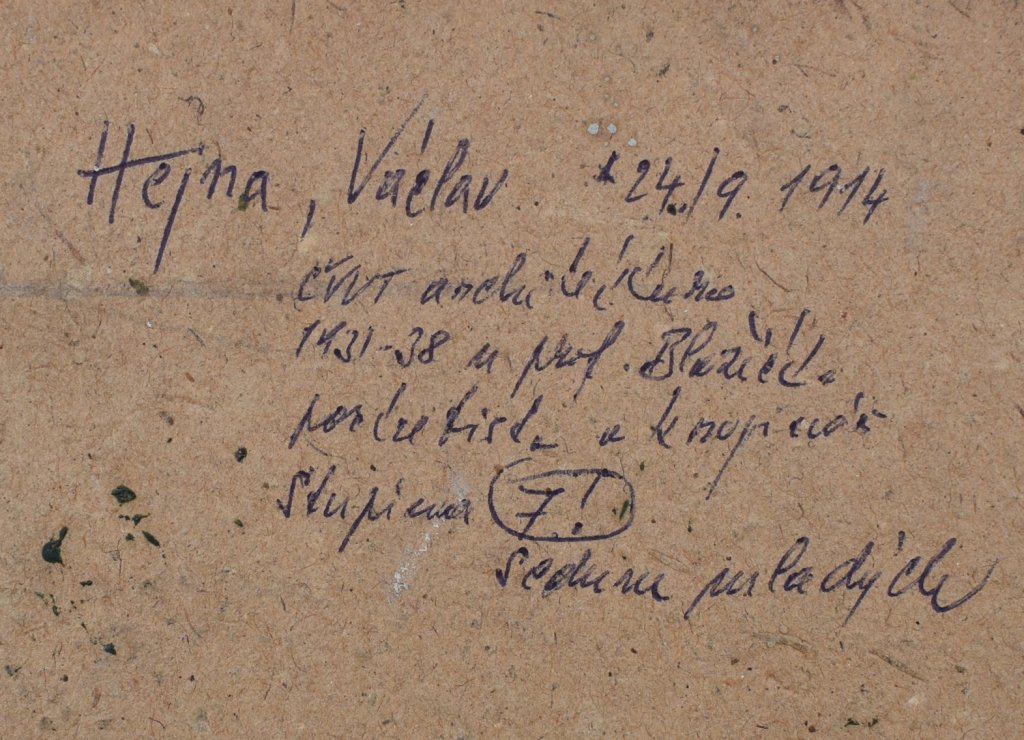 Hejna, Václav. *24./9. 1914
ČVUT architektura
1931-38 u prof. Blažíčka
portretista a krajinář
Skupina 7!
Sedm mladých